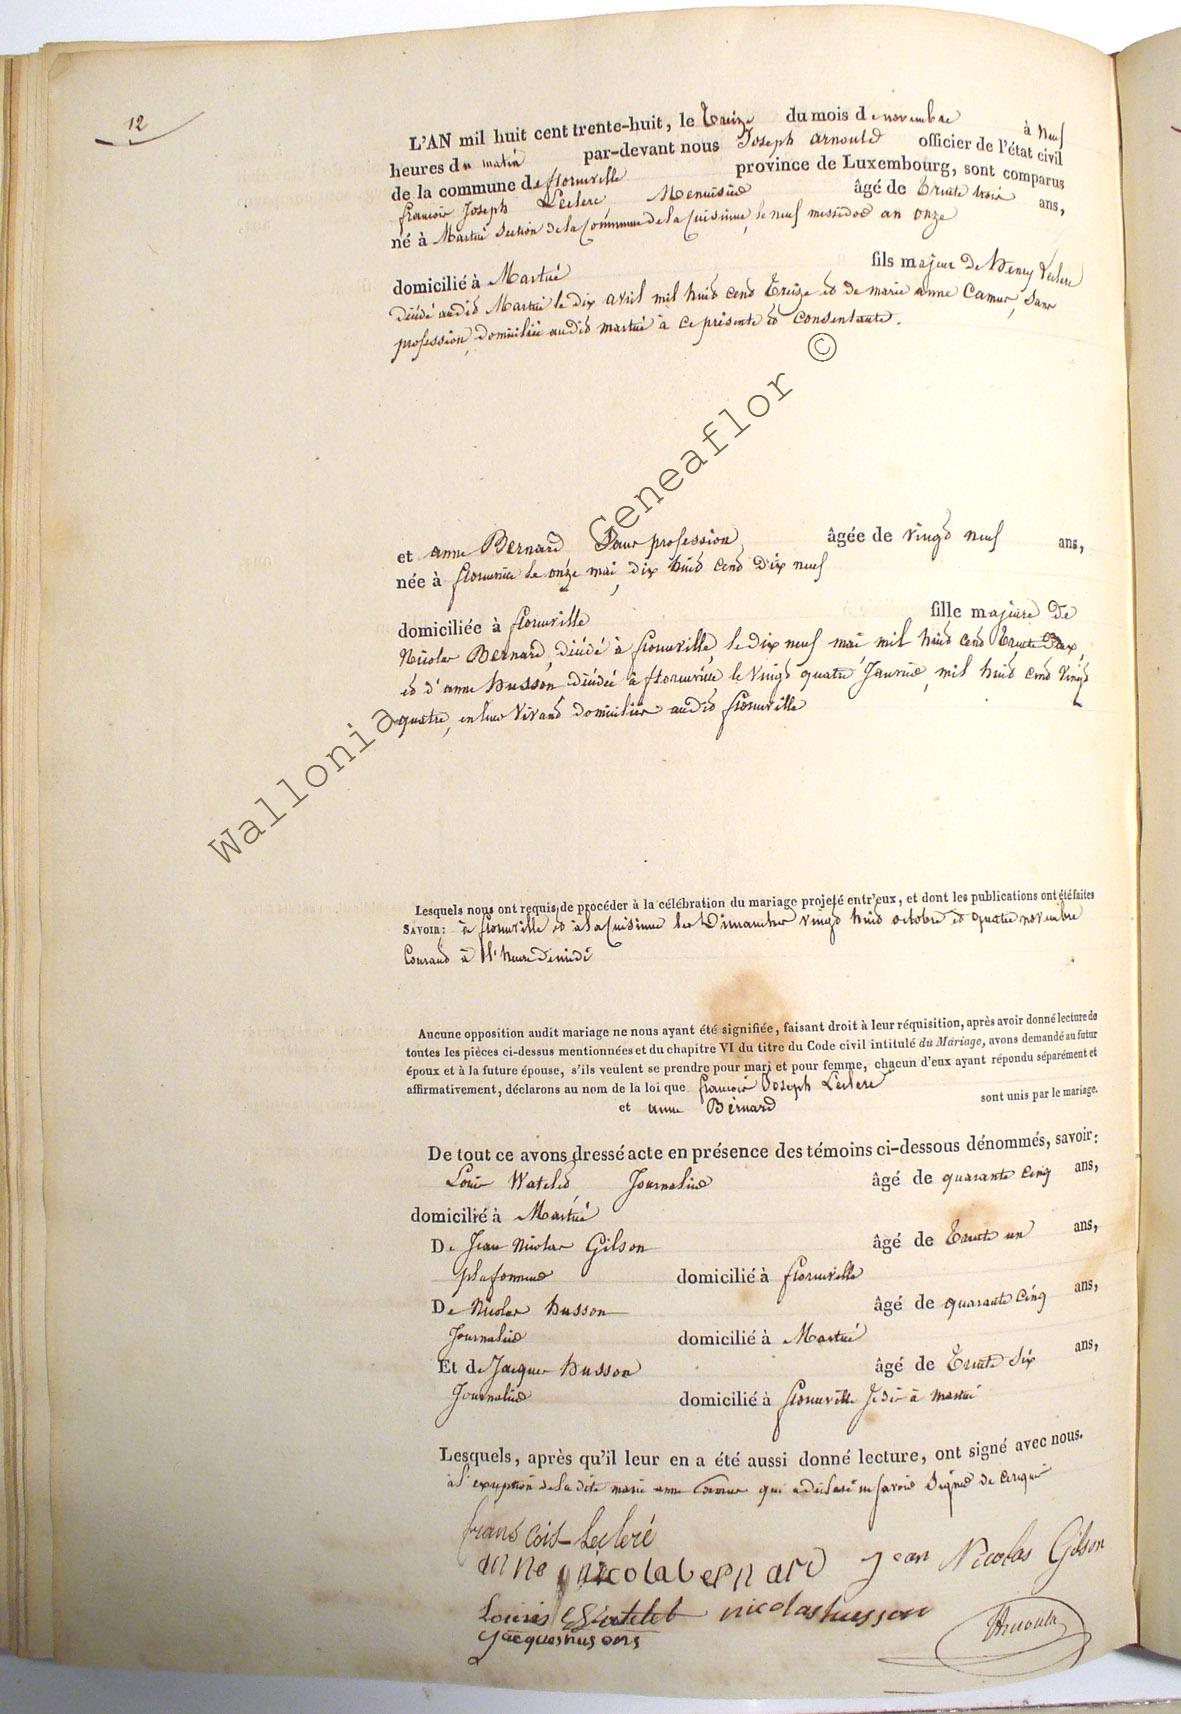 12
L'AN mil huit cent trente-huit, le treize du mois de novembre à neuf
heures du matin par-devant nous Joseph Arnould officier de l'état civil
de la commune de florenville province de Luxembourg, sont comparus
françois Joseph Leclere Menuisier âgé de trente trois ans,
né à Martué Section de la Commune de la Cuisinne, le neuf messidor an onze
domicilié à Martué fils majeur de henry Leclere
décédé audit Martué le dix avril mil huit cent treize et de marie anne Camus, sans
profession, domiciliée audit martué à ce présente et consentante.
et anne Bernard Sans profession, âgée de vingt neuf ans,
née à florenville le onze mai, dix huit cent dix neuf
domiciliée à florenville fille majeure de
Nicolas Bernard, décédé à florenville, le dix neuf mai mil huit cent trente deux,
et d'anne husson décédée à florenville le vingt quatre Janvier, mil huit cent vingt
quatre, en leur vivant domiciliés audit florenville
Lesquels nous ont requis de procéder à la célébration du mariage projeté entr'eux, et dont les publications ont été faites
SAVOIR: à florenville et à la Cuisinne les Dimanches vingt huit octobre et quatre novembre
Courant à l'heure de midi
Aucune opposition audit mariage ne nous ayant été signifiée, faisant droit à leur réquisition, après avoir donné lecture de
toutes les pièces ci-dessus mentionnées et du chapitre VI du titre du Code civil intitulé du Mariage, avons demandé au futur
époux et à la future épouse, s'ils veulent se prendre pour mari et pour femme, chacun d'eux ayant répondu séparément et
affirmativement, déclarons au nom de la loi que françois Joseph Leclere
et anne Bernard sont unis par le mariage.
De tout ce avons dressé acte en présence des témoins ci-dessous dénommés, savoir:
Louis Watelet, Journalier âgé de quarante cinq ans,
domicilié à Martué
De Jean Nicolas Gilson âgé de trente un ans,
plafonneur domicilié à florenville
De Nicolas husson âgé de quarante cinq ans,
Journalier domicilié à Martué
Et de Jacques husson âgé de trente six ans,
Journalier domicilié à florenville
Lesquels, après qu'il leur en a été aussi donné lecture, ont signé avec nous.
à l'exception de la dite marie anne Camus qui a déclaré ne savoir signer de ce requis
francois Lecleré
anne nicola bernard jean Nicolas Gilson
Louis Watelet nicolas husson
jacques husons Arnould
Wallonia Geneaflor ©